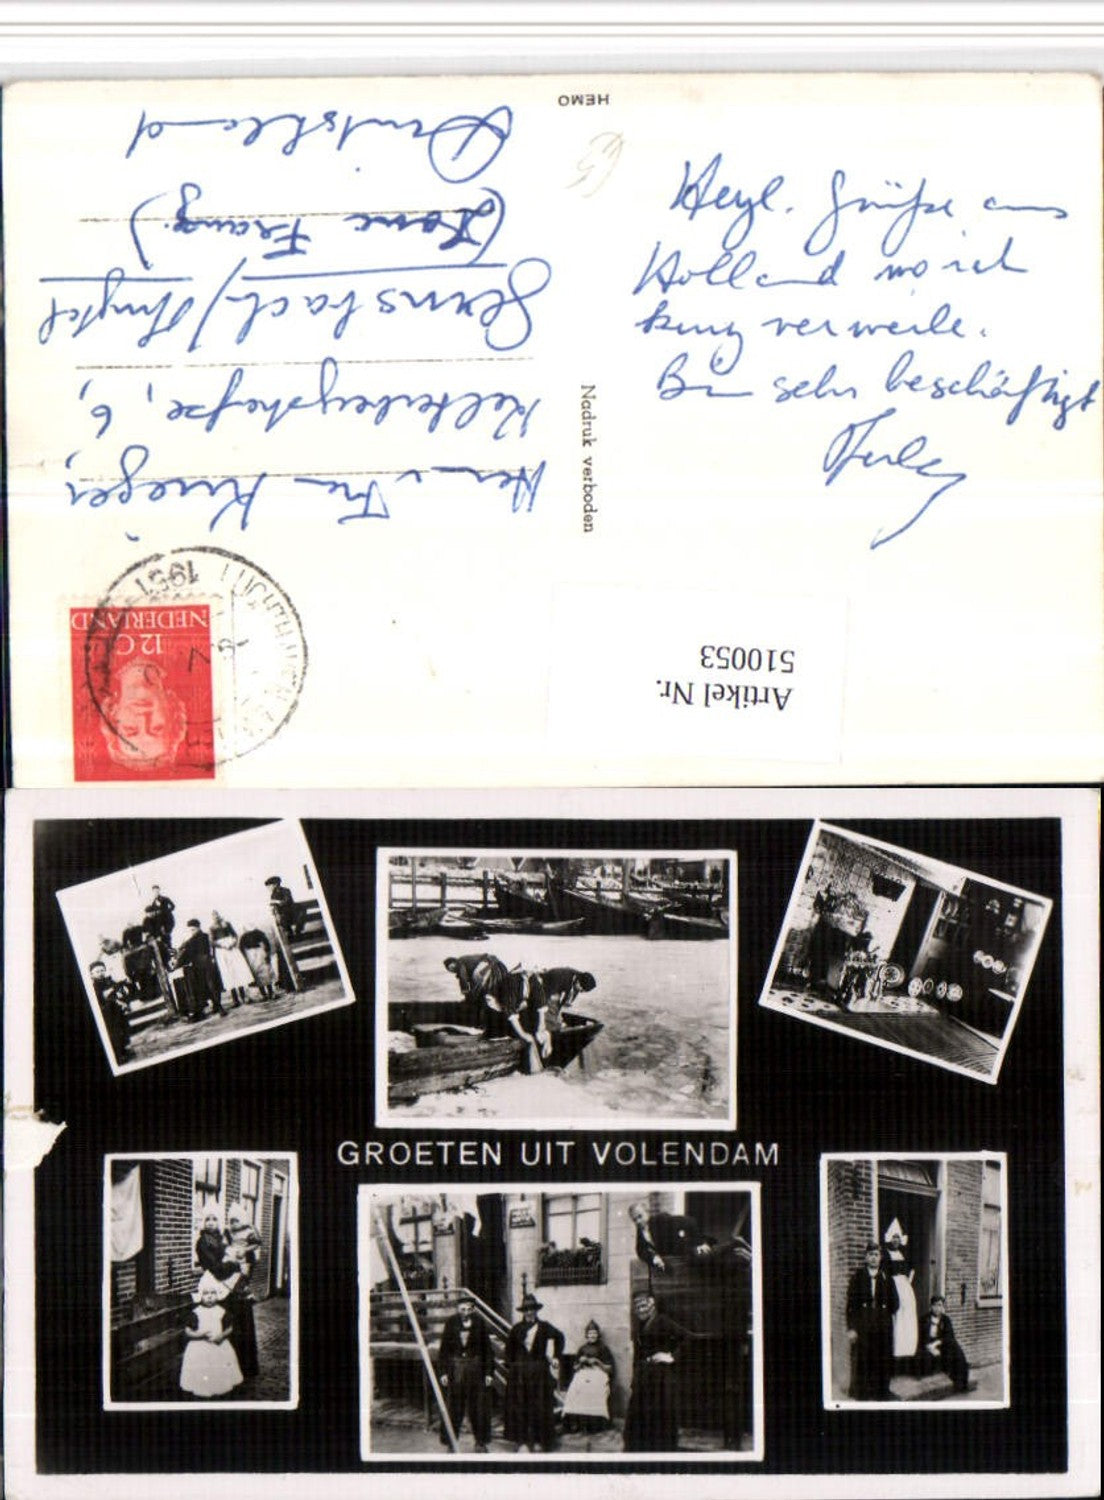 HEMO
Herzl. Grüße aus
Holland wo ich
kurz verweile.
Bin sehr beschäftigt
Nadruk verboden
Herrn u Frau Krieger,
6,
Gernsbach/Murgtal
(Zone Franz.)
Deutschland
NEDERLAND
12 C
1951
LUCHTHAVEN
Artikel Nr.
510053
GROETEN UIT VOLENDAM